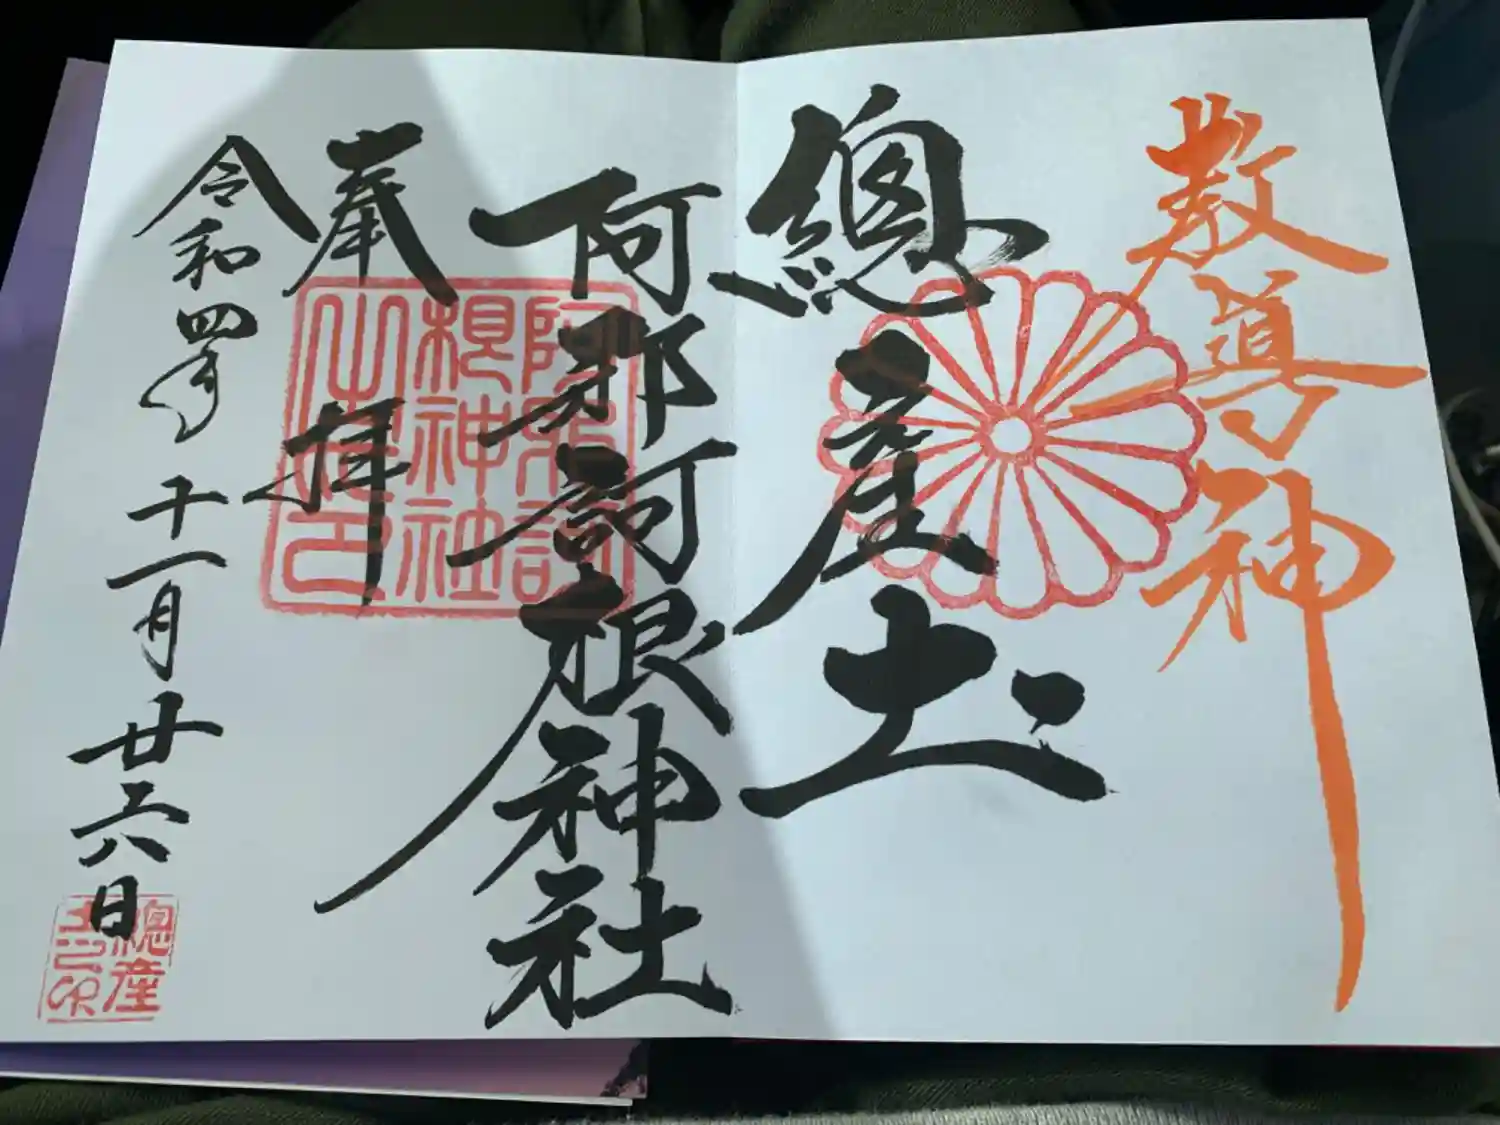 教導神
總産土
阿邪訶根神社
奉拝
令和四年十一月廿六日
阿邪訶
根神社
之印
總産
土之印